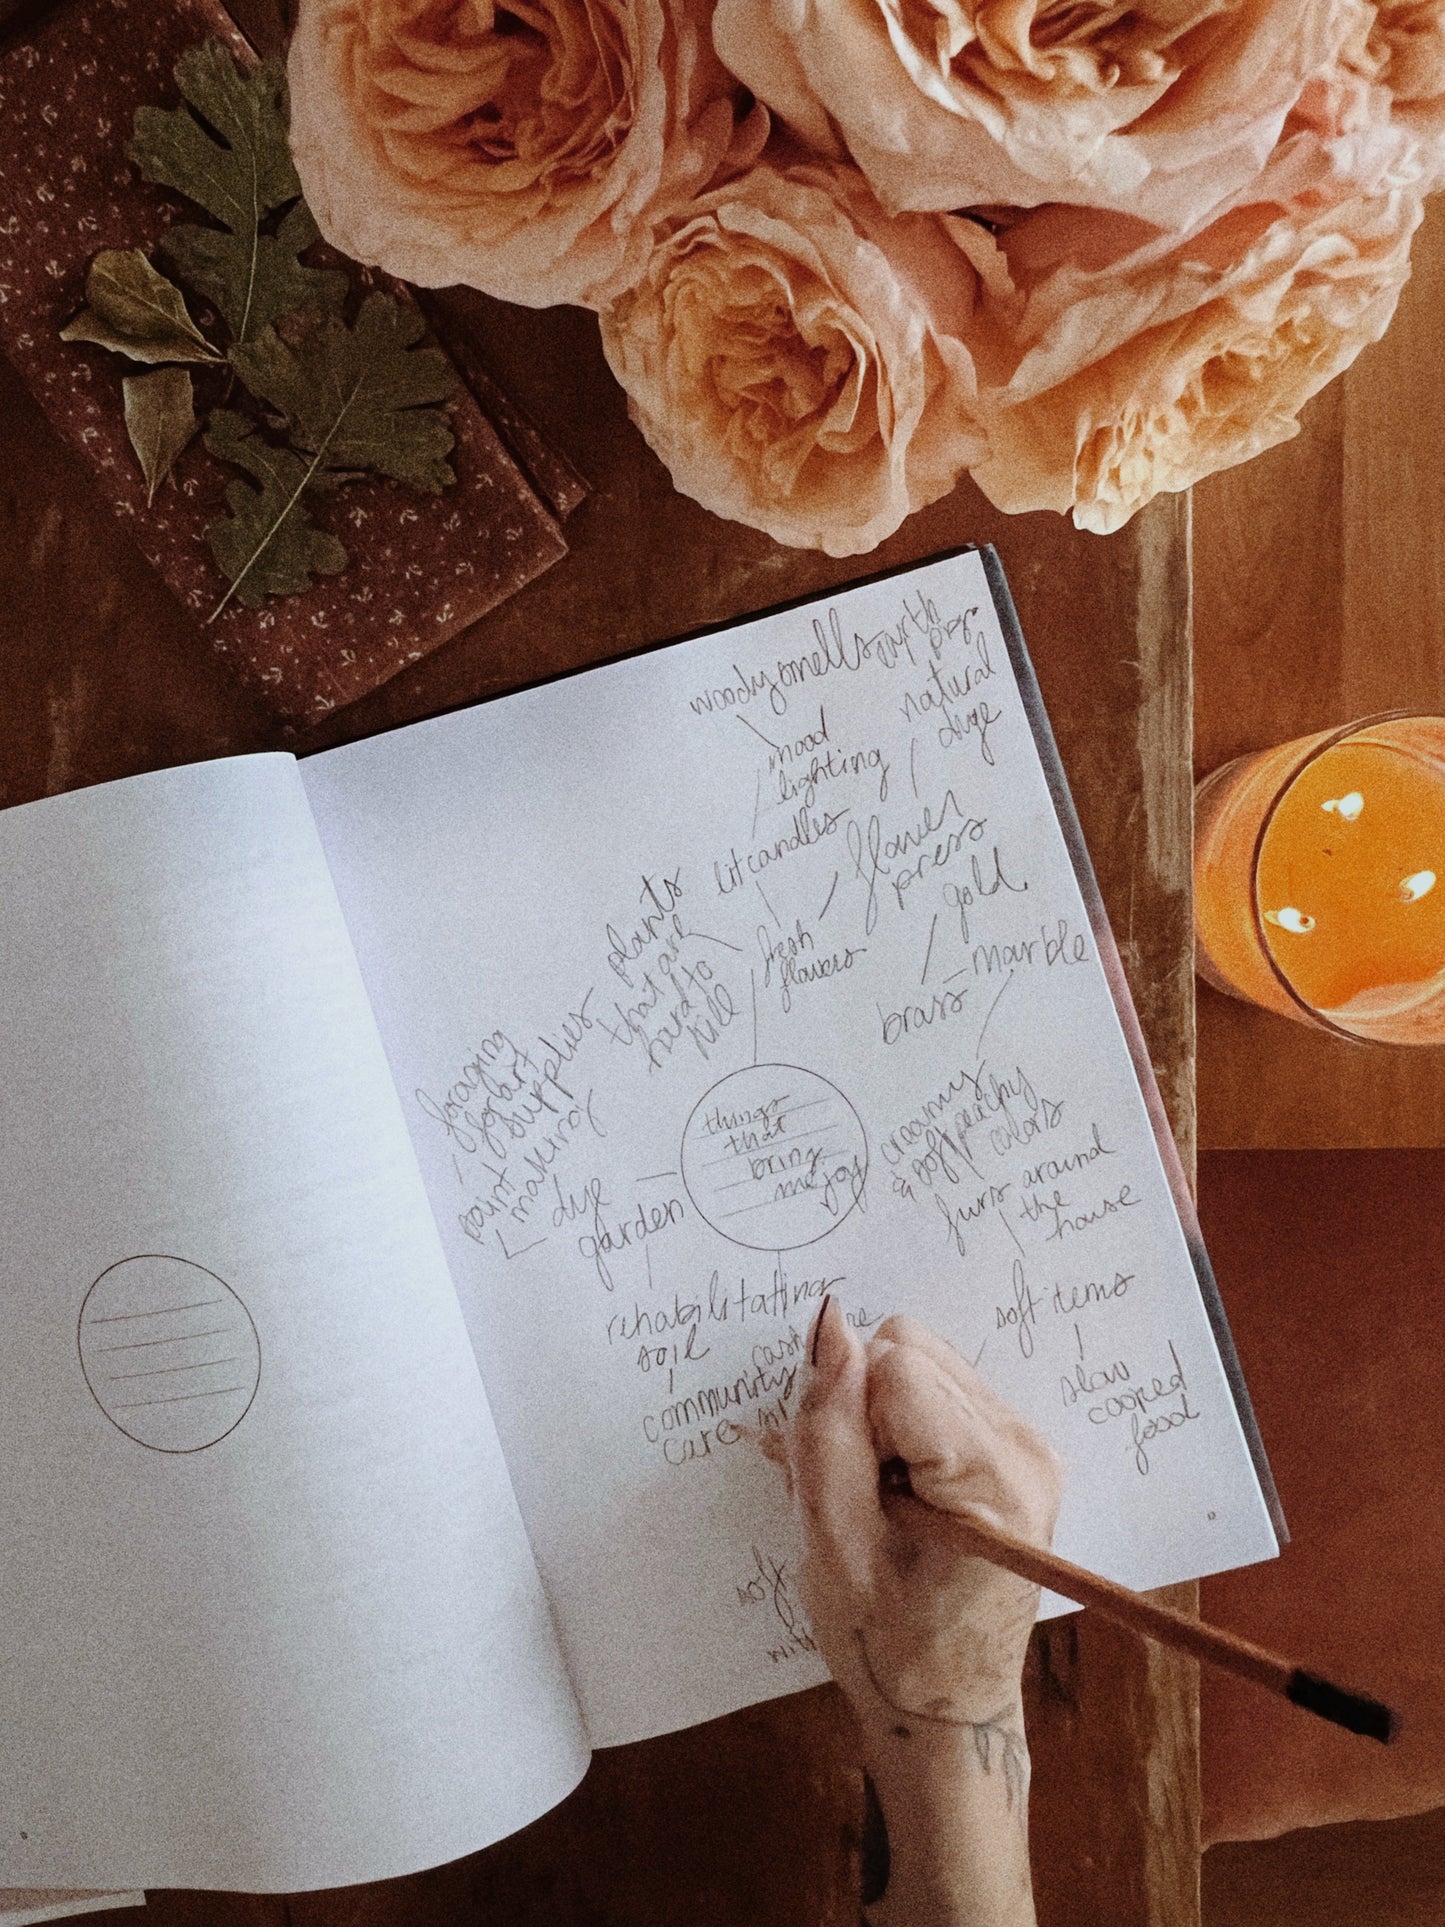 woody smells with
natural
dye
mood
lighting
lit candles
flower
press
gold
marble
brass
fresh
flowers
plants
that are
hard to
kill
foraging
for art
supplies
paint
making
dye
garden
things
that
bring
me joy
creamy
& soft peachy
colors
furs around
the
house
soft items
slow
cooked
food
rehabilitating
soil
community
care
soft